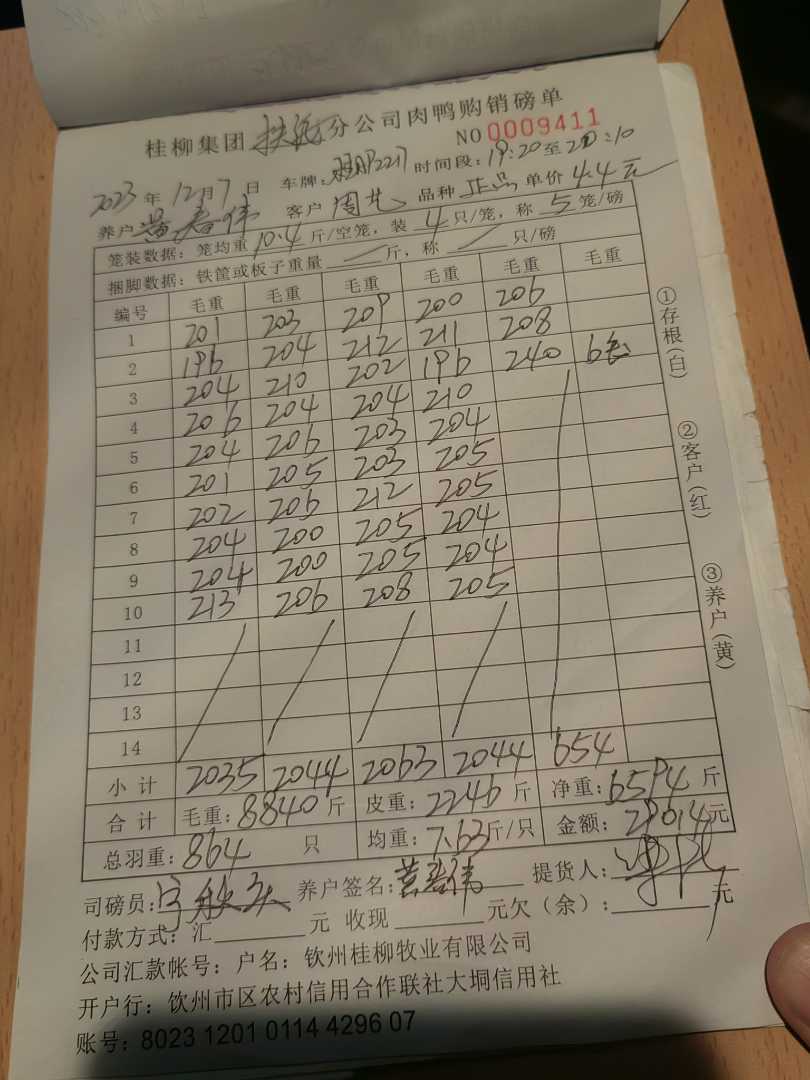 桂柳集团 分公司肉鸭购销磅单
NO 0009411
2023年12月7日 车牌: 时间段:19:20至20:10
养户 黄春伟 客户 周 品种 正品 单价 4.4元
笼装数据:笼均重 10.4 斤/空笼,装 4 只/笼,称 5 笼/磅
捆脚数据:铁筐或板子重量 / 斤,称 / 只/磅
编号 毛重 毛重 毛重 毛重 毛重 毛重
1 201 203 209 200 206
2 196 204 212 211 208
3 204 210 202 196 240 6笼
4 206 204 204 210
5 204 206 203 204
6 201 205 203 205
7 202 206 212 205
8 204 200 205 204
9 204 200 205 204
10 213 206 208 205
11
12
13
14
小计 2035 2044 2063 2044 654
合计 毛重:8840斤 皮重:2246斤 净重:6594斤
总羽重:864 只 均重:7.63斤/只 金额:29014元
司磅员: 养户签名:黄春伟 提货人:
付款方式:汇 元 收现 元欠(余): 元
公司汇款帐号:户名:钦州桂柳牧业有限公司
开户行:钦州市区农村信用合作联社大垌信用社
账号:8023 1201 0114 4296 07
①存根(白)
②客户(红)
③养户(黄)